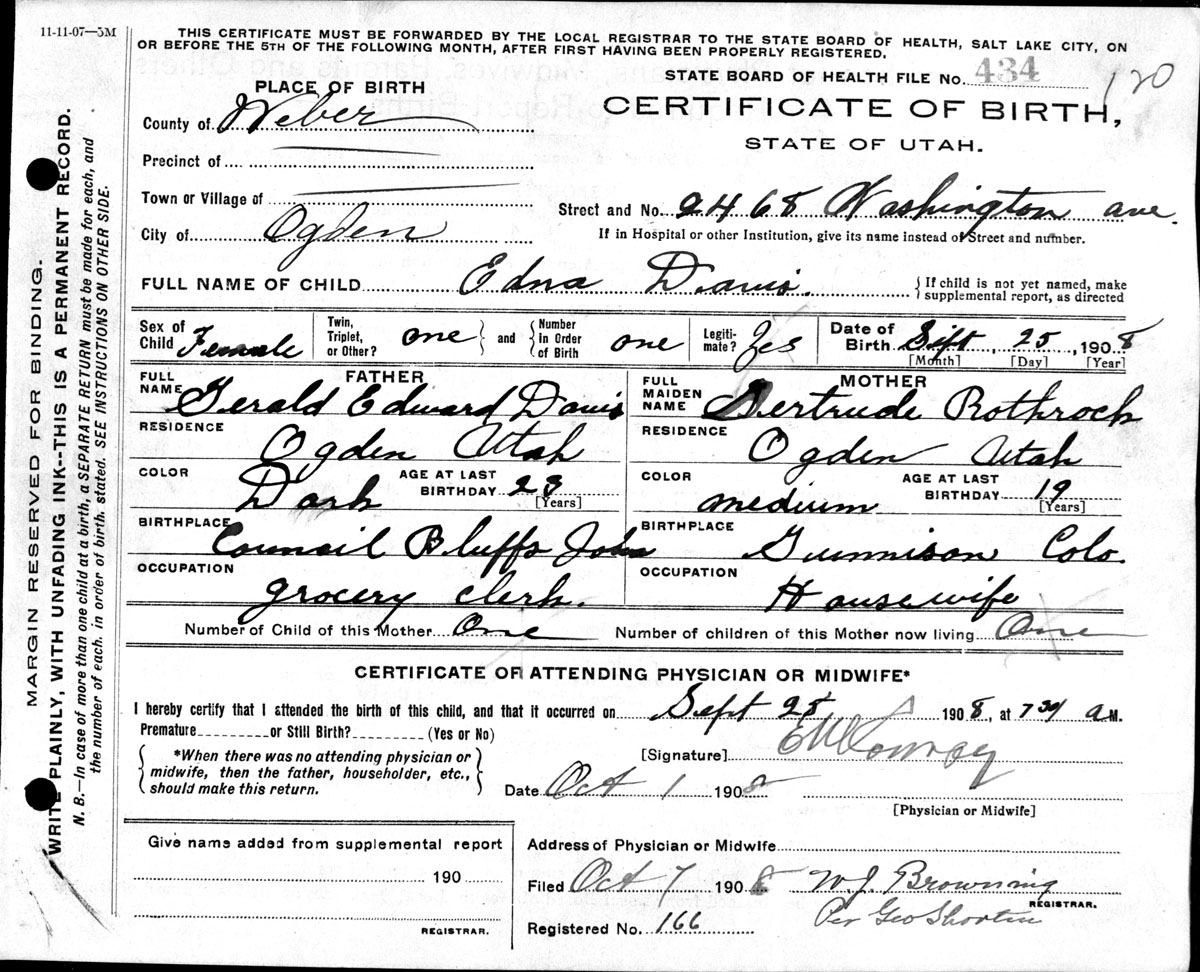 11-11-07—5M
THIS CERTIFICATE MUST BE FORWARDED BY THE LOCAL REGISTRAR TO THE STATE BOARD OF HEALTH, SALT LAKE CITY, ON
OR BEFORE THE 5TH OF THE FOLLOWING MONTH, AFTER FIRST HAVING BEEN PROPERLY REGISTERED.
STATE BOARD OF HEALTH FILE No. 434
120
PLACE OF BIRTH
CERTIFICATE OF BIRTH,
STATE OF UTAH.
County of Weber
Precinct of
Town or Village of
City of Ogden
Street and No. 2468 Washington ave.
If in Hospital or other Institution, give its name instead of Street and number.
FULL NAME OF CHILD Edna Davis.
{ If child is not yet named, make
supplemental report, as directed
Sex of Child Female
Twin, Triplet, or Other? one } and { Number in Order of Birth one
Legiti-mate? Yes
Date of Birth Sept, 25, 1908
[Month] [Day] [Year]
FATHER
FULL NAME Gerald Edward Davis
RESIDENCE
Ogden Utah
COLOR
Dark
AGE AT LAST BIRTHDAY 23
[Years]
BIRTHPLACE
Council Bluffs
OCCUPATION
grocery clerk.
MOTHER
FULL MAIDEN NAME Gertrude Rothrock
RESIDENCE
Ogden Utah
COLOR
medium
AGE AT LAST BIRTHDAY 19
[Years]
BIRTHPLACE
Gunnison Colo.
OCCUPATION
Housewife
Number of Child of this Mother One
Number of children of this Mother now living One
CERTIFICATE OF ATTENDING PHYSICIAN OR MIDWIFE*
I hereby certify that I attended the birth of this child, and that it occurred on Sept 25 1908, at 7 30 a M.
Premature or Still Birth? (Yes or No)
{ *When there was no attending physician or
midwife, then the father, householder, etc.,
should make this return. }
[Signature]
Date Oct 1 1908
[Physician or Midwife]
Give name added from supplemental report
190
REGISTRAR.
Address of Physician or Midwife
Filed Oct 7 1908 W. J. Browning
REGISTRAR.
Per Geo Shorten
Registered No. 166
MARGIN RESERVED FOR BINDING.
WRITE PLAINLY, WITH UNFADING INK--THIS IS A PERMANENT RECORD.
N. B.—In case of more than one child at a birth, a SEPARATE RETURN must be made for each, and
the number of each, in order of birth, stated. SEE INSTRUCTIONS ON OTHER SIDE.